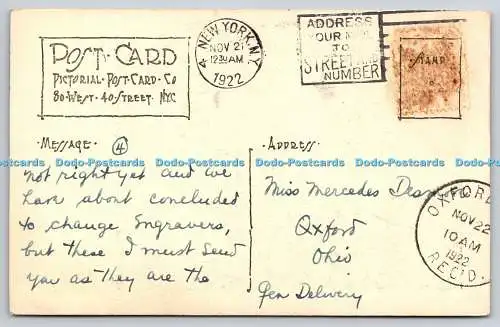 POST CARD
PICTORIAL POST CARD CO
80 WEST 40 STREET NYC
NEW YORK, N.Y.
4
NOV 21
12 30 AM
1922
ADDRESS
YOUR MAIL
TO
STREET AND
NUMBER
STAMP
MESSAGE
4
ADDRESS
Dodo-Postcards Dodo-Postcards Dodo-Postcards Dodo-Postcards Dodo-Postcards Dodo-Postcards
not right yet and we
have about concluded
to change Engravers,
but these I must send
you as they are the
Miss Mercedes
Oxford
Ohio
Gen Delivery
OXFORD
NOV 22
10 AM
1922
REC'D.